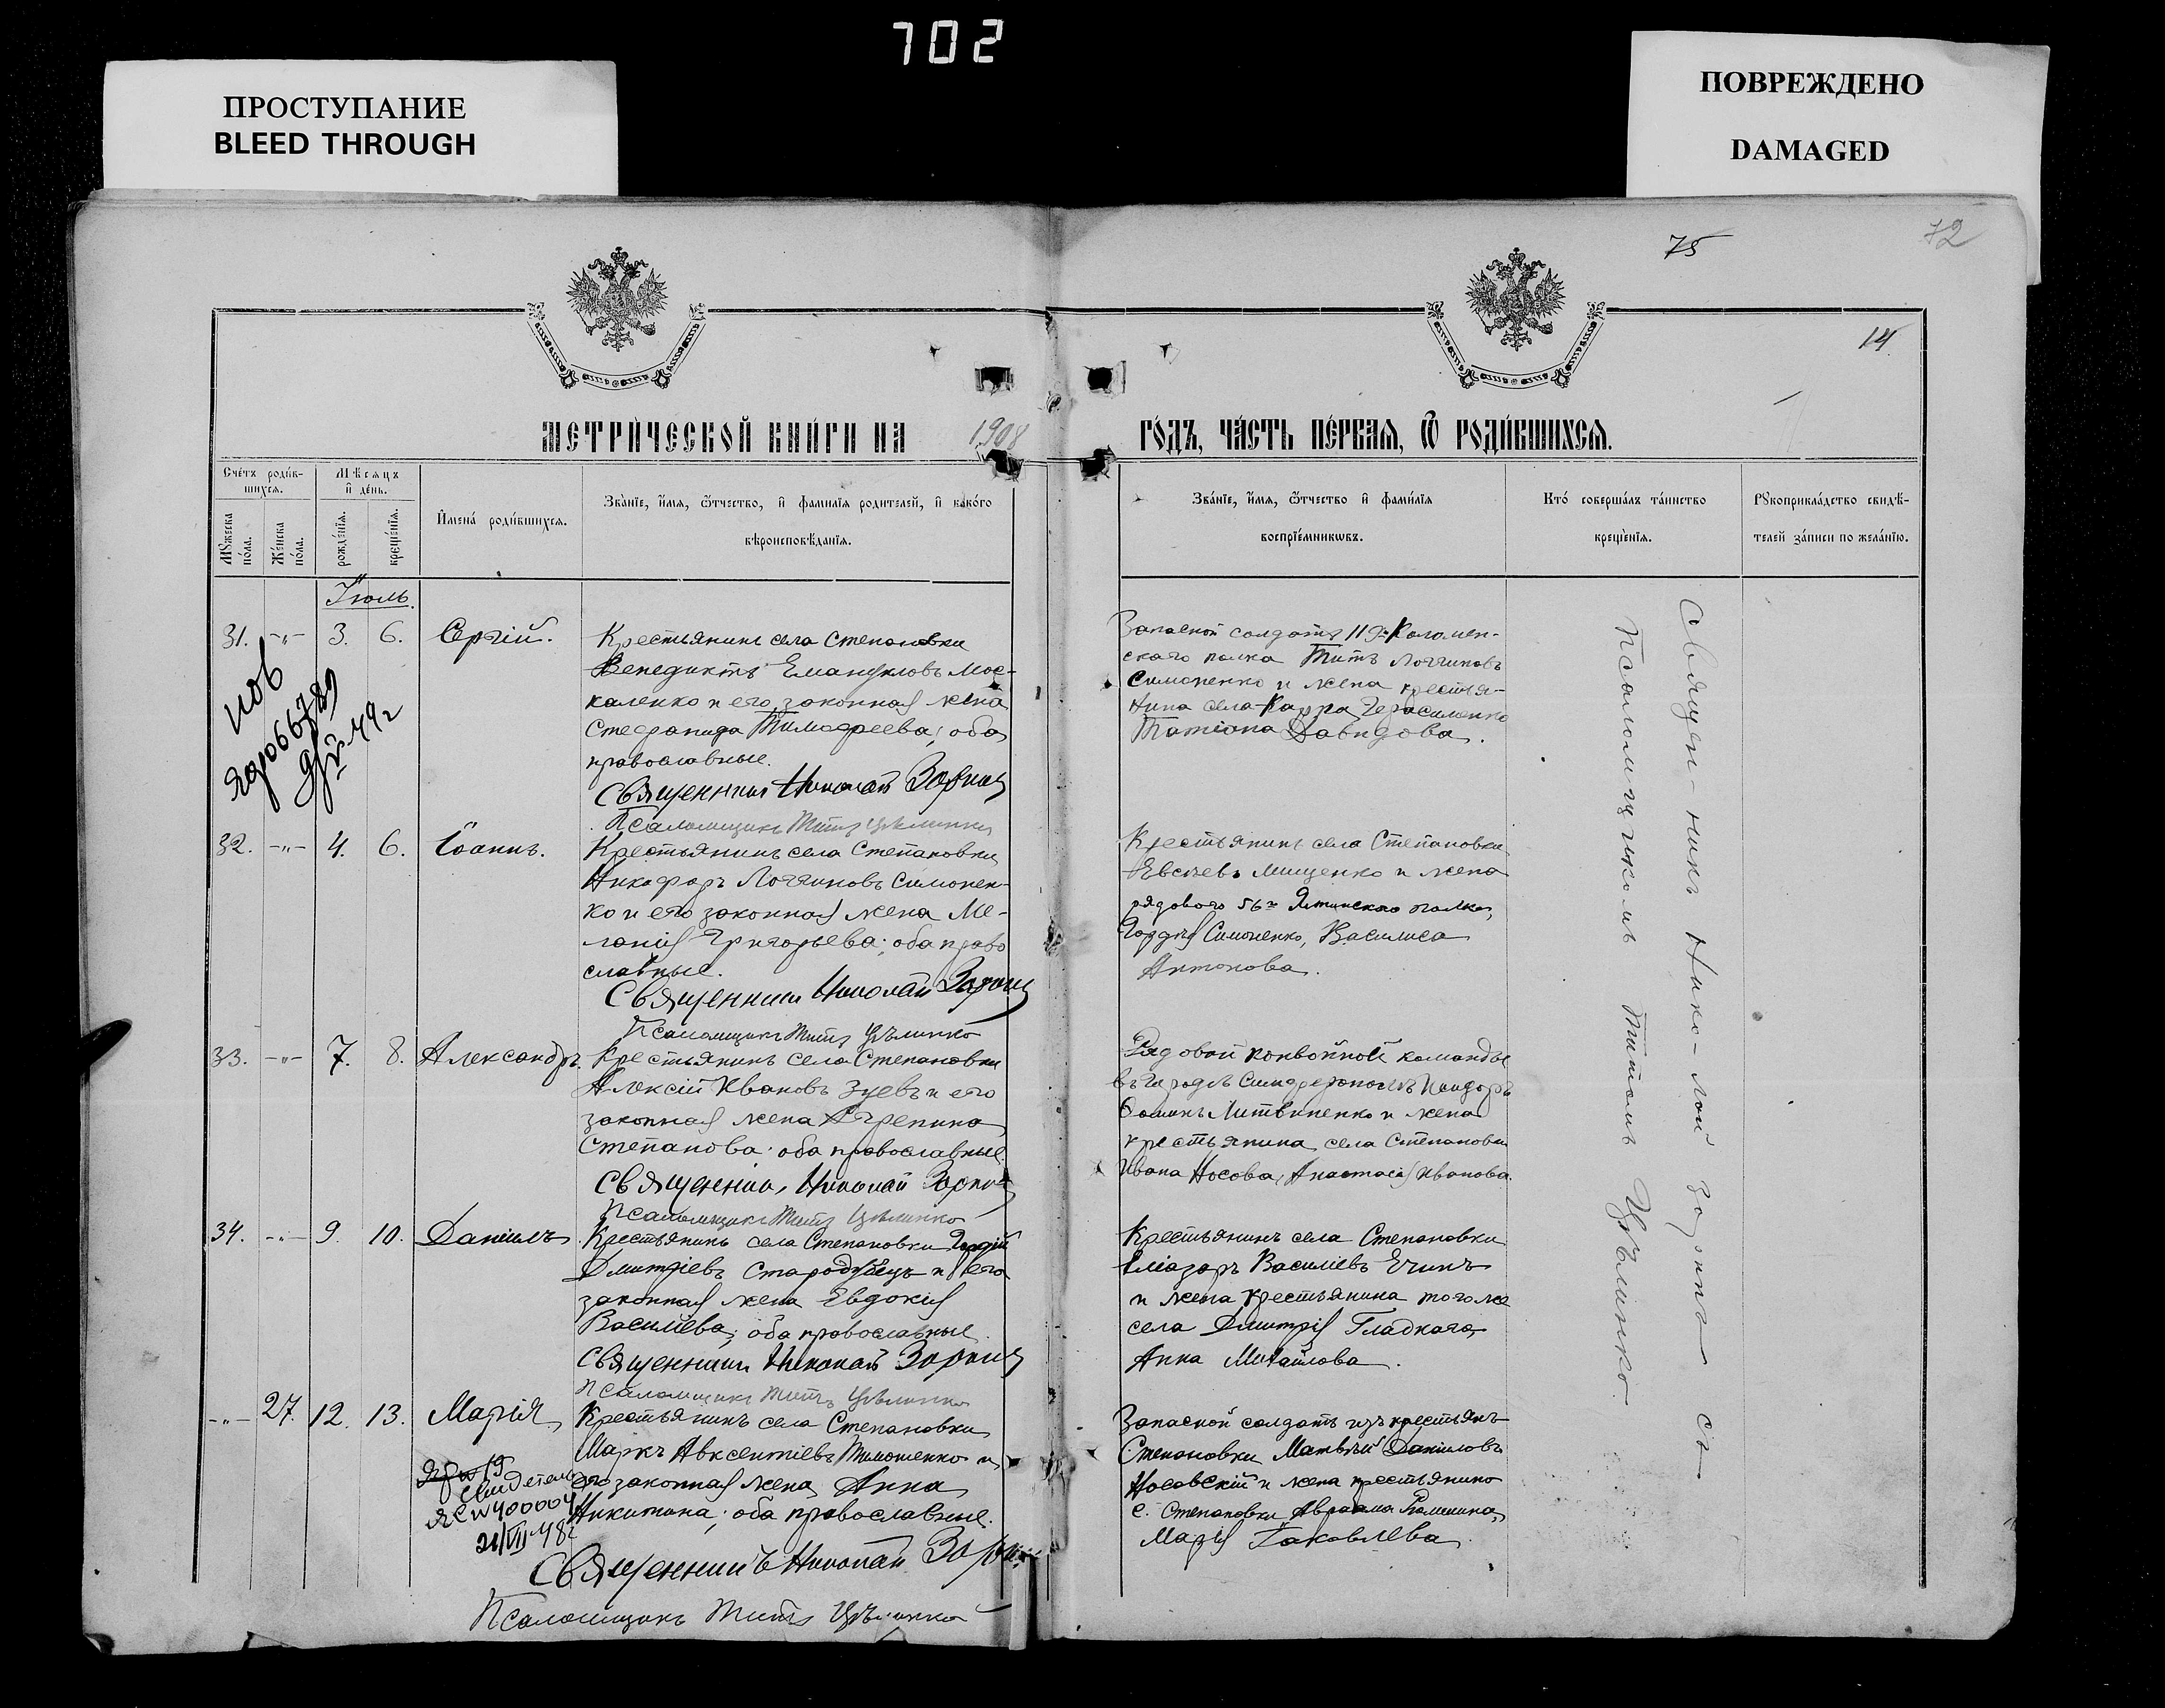 702
ПРОСТУПАНИЕ
BLEED THROUGH
ПОВРЕЖДЕНО
DAMAGED
75
72
14
МЕТРИЧЕСКОЙ КНИГИ НА 1908 ГОДЪ, ЧАСТЬ ПЕРВАЯ, Ѽ РОДИВШИХСЯ.
Счетъ родив-
шихся.
Мѣсяцъ
и день.
Мужеска пола.
Женска пола.
рожденія.
крещенія.
Имена родившихся.
Званіе, имя, ѿчество, и фамилія родителей, и какого
вѣроисповѣданія.
Званіе, имя, ѿчество и фамилія
воспріемниковъ.
Кто совершалъ таинство
крещенія.
Рукоприкладство свидѣ-
телей записи по желанію.
Іюль.
31. -"- 3. 6. Сергій.
Крестьянинъ села Степановки
Венедиктъ Емануиловъ Мос-
каленко и его законная жена
Стефанида Тимофеева; оба
православные.
Священникъ Николай Зоринъ
Псаломщикъ Титъ Цѣлинко
Запасной солдатъ 119го Коломен-
скаго полка Титъ Логгиновъ
Симоненко и жена крестья-
нина села Карпа Герасименко
Татіана Давидова.
49г
32. -"- 4. 6. Іоаннъ.
Крестьянинъ села Степановки
Никифоръ Логгиновъ Симонен-
ко и его законная жена Ме-
ланія Григорьева; оба право
славные.
Священникъ Николай Зоринъ
Псаломщикъ Титъ Цѣлинко
Крестьянинъ села Степановки
Мищенко и жена
рядового 56го полка
Гордѣя Симоненко, Василиса
Антонова.
33. -"- 7. 8. Александръ.
Крестьянинъ села Степановки
Алексій Ивановъ Зуевъ и его
законная жена Агрепина
Степанова; оба православные.
Священникъ Николай Зоринъ
Псаломщикъ Титъ Цѣлинко
Рядовой конвойной команды
въ городѣ Симферополѣ
Литвиненко и жена
крестьянина села Степановки
Ивана Носова, Анастасія Иванова.
34. -"- 9. 10. Даніилъ
Крестьянинъ села Степановки Гордій
Дмитріевъ Стародубецъ и его
законная жена Евдокія
Василіева; оба православные.
Священникъ Николай Зоринъ
Псаломщикъ Титъ Цѣлинко
Крестьянинъ села Степановки
Еліазаръ Василіевъ
и жена крестьянина того же
села Дмитрія Гладкаго,
Анна Михайлова.
-"- 27. 12. 13. Марія
Крестьянинъ села Степановки
Маркъ Авксентіевъ Тимошенко и
его законная жена Анна
Никитина; оба православные.
Священникъ Николай Зоринъ
Псаломщикъ Титъ Цѣлинко
400004
21/VII 48г
Запасной солдатъ изъ крестьянъ
Степановки Матвѣй Даниловъ
Носовскій и жена крестьянина
с. Степановки Авраама
Марія Іаковлева.
Священникъ Николай Зоринъ съ
Псаломщикомъ Титомъ Цѣлинко